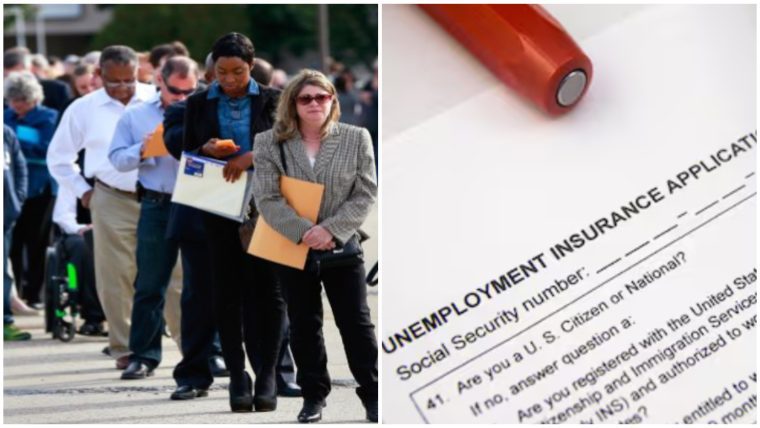 UNEMPLOYMENT INSURANCE APPLICATI
Social Security number:
41. Are you a U. S. Citizen or National?
If no, answer question a:
Are you registered with the United States
izenship and Immigration Services
ly INS) and authorized to wo
tes?
entitled to w
months